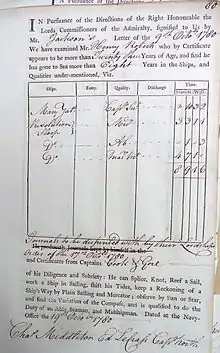 80
IN Pursuance of the Directions of the Right Honourable the
Lords Commissioners of the Admiralty, signified to Us by
Mr. Jackson's Letter of the 9th Octor 1780
We have examined Mr. Henry Roberts who by Certificate
appears to be more than Twenty two Years of Age, and find he
has gone to Sea more than Eight Years in the Ships, and
Qualities under-mentioned, Viz.
Ship. Entry. Quality. Discharge Time.
Years M. W. D.
Resolution
Sloop
Do Ab
Do
8
Journals to be dispensed with by their Lordships
Order of the 17th Octr 1780
and Certificates from Captains Cook & Gore
of his Diligence and Sobriety: He can Splice, Knot, Reef a Sail,
work a Ship in Sailing, shift his Tides, keep a Reckoning of a
Ship's Way by Plain Sailing and Mercator; observe by Sun or Star,
and find the Variation of the Compass, and is qualified to do the
Duty of an Able Seaman, and Midshipman. Dated at the Navy-
Office 19th Octr 1780
Chas Middleton